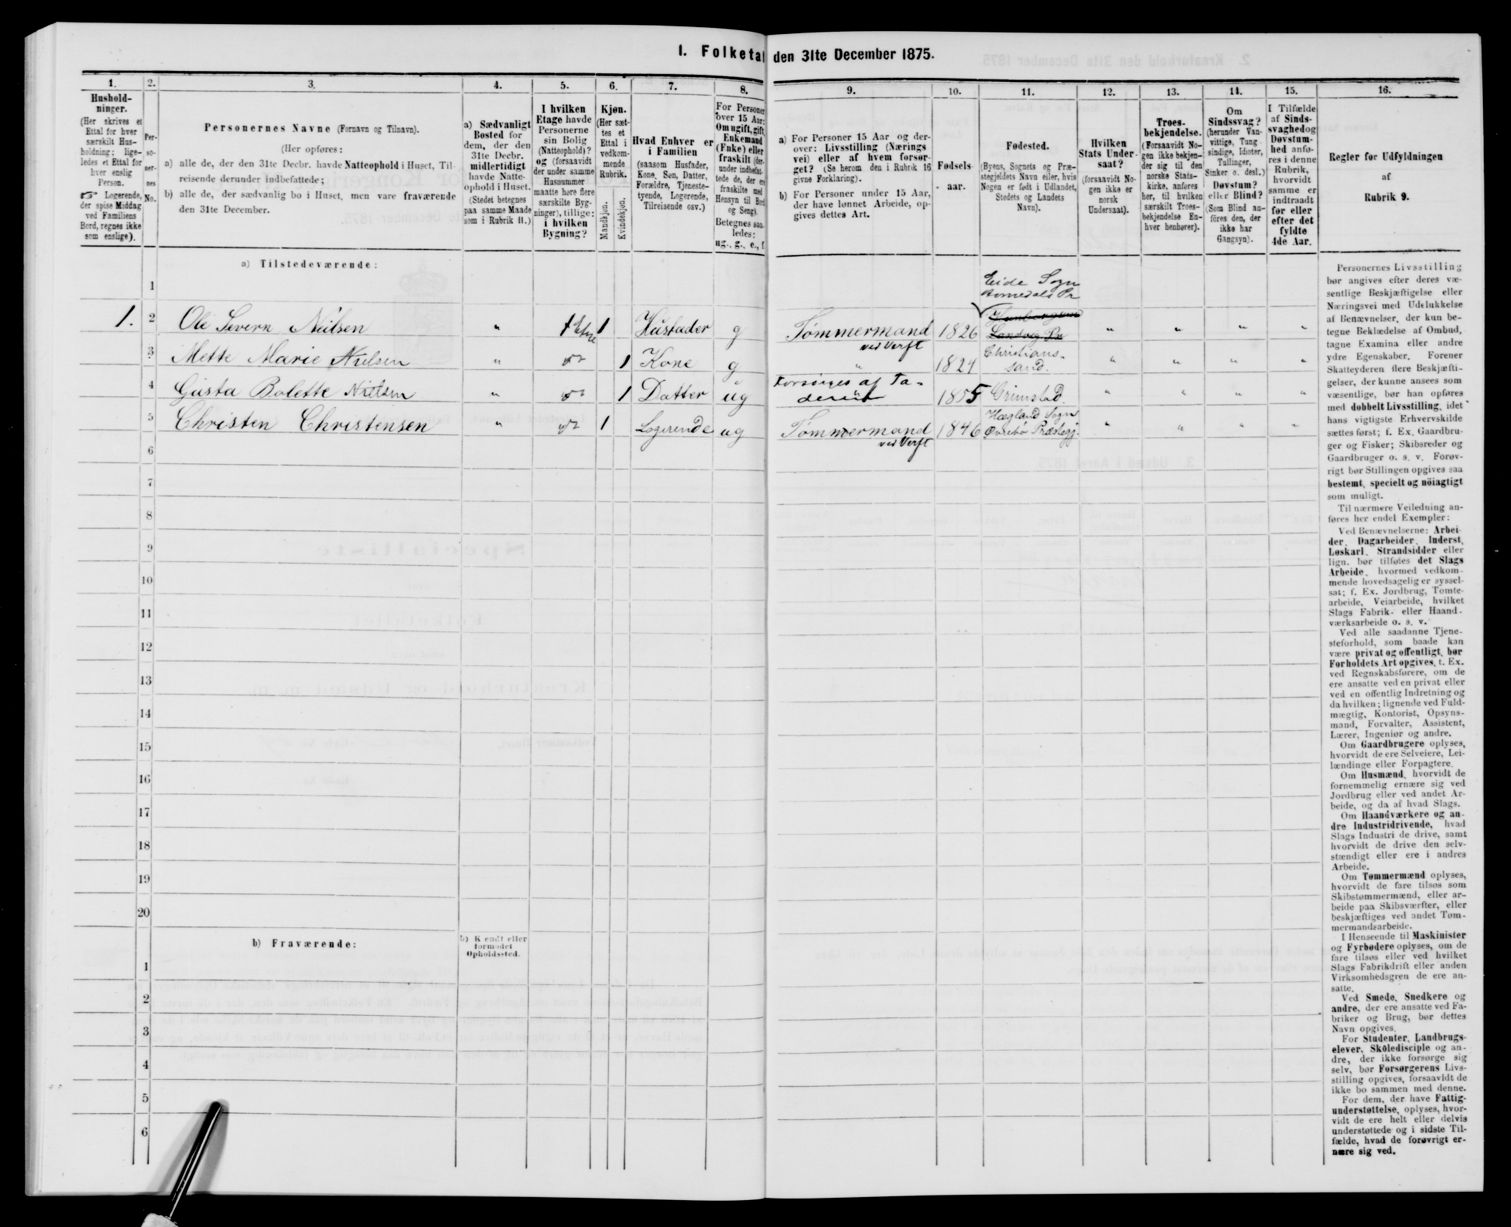 1. Folketal den 31te December 1875.
1.
Hushold-
ninger.
(Her skrives et
Ettal for hver
særskilt Hus-
holdning; lige-
ledes et Ettal for
hver enslig
Person.
Logerende,
der spise Middag
ved Familiens
Bord, regnes ikke
som enslige).
2.
Per-
so-
ner-
nes
No.
3.
Personernes Navne (Fornavn og Tilnavn).
(Her opføres:
a) alle de, der den 31te Decbr. havde Natteophold i Huset, Til-
reisende derunder indbefattede;
b) alle de, der sædvanlig bo i Huset, men vare fraværende
den 31te December.
4.
a) Sædvanligt
Bosted for
dem, der den
31te Decbr.
midlertidigt
havde Natte-
ophold i Huset.
(Stedet betegnes
paa samme Maade
som i Rubrik 11.)
5.
I hvilken
Etage havde
Personerne
sin Bolig
(Natteophold)?
og (forsaavidt
der under samme
Husnummer
maatte høre flere
særskilte Byg-
ninger), tillige:
i hvilken
Bygning?
6.
Kjøn.
(Her sæt-
tes et
Ettal i
vedkom-
mende
Rubrik.
Mandkjøn.
Kvindekjøn.
7.
Hvad Enhver er
i Familien
(saasom Husfader,
Kone, Søn, Datter,
Forældre, Tjeneste-
tyende, Logerende,
Tilreisende osv.)
8.
For Personer
over 15 Aar:
Om ugift, gift,
Enkemand
(Enke) eller
fraskilt (der-
under indbefat-
tede de, der ere
fraskilte med
Hensyn til Bord
og Seng).
Betegnes saa-
ledes:
ug., g., e., f.
9.
a) For Personer 15 Aar og der-
over: Livsstilling (Nærings-
vei) eller af hvem forsør-
get? (Se herom den i Rubrik 16
givne Forklaring).
b) For Personer under 15 Aar,
der have lønnet Arbeide, op-
gives dettes Art.
10.
Fødsels-
aar.
11.
Fødested.
(Byens, Sognets og Præ-
stegjeldets Navn eller, hvis
Nogen er født i Udlandet,
Stedets og Landets
Navn).
12.
Hvilken
Stats Under-
saat?
(forsaavidt No-
gen ikke er
norsk
Undersaat).
13.
Troes-
bekjendelse.
(Forsaavidt No-
gen ikke bekjen-
der sig til den
norske Stats-
kirke, anføres
her, til hvilken
særskilt Troes-
bekjendelse En-
hver henhører).
14.
Om
Sindssvag?
(herunder Van-
vittige, Tung-
sindige, Idioter,
Tullinger,
Sinker o. desl.)
Døvstum?
eller Blind?
(Som Blind an-
føres den, der
ikke har
Gangsyn).
15.
I Tilfælde
af Sinds-
svaghed og
Døvstum-
hed anfø-
res i denne
Rubrik,
hvorvidt
samme er
indtraadt
før eller
efter det
fyldte
4de Aar.
16.
Regler før Udfyldningen
af
Rubrik 9.
a) Tilstedeværende:
1
Eide Sogn
1. 2 Ole Severn Nielsen " 1 Etage 1 Husfader g Tømmermand ved Verft 1826 " " " "
3 Mette Marie Nielsen " do 1 Kone g " 1824 Christians-
sand. " " " "
4 Gusta Bolette Nielsen " do 1 Datter ug Forsørges af Fa-
deren 1855 Grimstad. " " " "
5 Christen Christensen " do 1 Logerende ug Tømmermand ved Verft 1846 Hægland Sogn
Øvrebø Præstegj. " " " "
6
7
8
9
10
11
12
13
14
15
16
17
18
19
20
b) Fraværende:
b) Kjendt eller
formodet
Opholdssted.
1
2
3
4
5
6
Personernes Livsstilling
bør angives efter deres væ-
sentlige Beskjæftigelse eller
Næringsvei med Udelukkelse
af Benævnelser, der kun be-
tegne Beklædelse af Ombud,
tagne Examina eller andre
ydre Egenskaber. Forener
Skatteyderen flere Beskjæfti-
gelser, der kunne ansees som
væsentlige, bør han opføres
med dobbelt Livsstilling, idet
hans vigtigste Erhvervskilde
sættes først; f. Ex. Gaardbru-
ger og Fisker; Skibsreder og
Gaardbruger o. s. v. Forøv-
rigt bør Stillingen opgives saa
bestemt, specielt og nöiagtigt
som muligt.
Til nærmere Veiledning an-
føres her endel Exempler:
Ved Benævnelserne: Arbei-
der, Dagarbeider, Inderst,
Løskarl, Strandsidder eller
lign. bør tilføies det Slags
Arbeide, hvormed vedkom-
mende hovedsagelig er syssel-
sat; f. Ex. Jordbrug, Tomte-
arbeide, Veiarbeide, hvilket
Slags Fabrik- eller Haand-
værksarbeide o. s. v.
Ved alle saadanne Tjene-
steforhold, som baade kan
være privat og offentligt, bør
Forholdets Art opgives, t. Ex.
ved Regnskabsførere, om de
ere ansatte ved en privat eller
ved en offentlig Indretning og
da hvilken; lignende ved Fuld-
mægtig, Kontorist, Opsyns-
mand, Forvalter, Assistent,
Lærer, Ingeniør og andre.
Om Gaardbrugere oplyses,
hvorvidt de ere Selveiere, Lei-
lændinge eller Forpagtere.
Om Husmænd, hvorvidt de
fornemmelig ernære sig ved
Jordbrug eller ved andet Ar-
beide, og da af hvad Slags.
Om Haandværkere og an-
dre Industridrivende, hvad
Slags Industri de drive, samt
hvorvidt de drive den selv-
stændigt eller ere i andres
Arbeide.
Om Tømmermænd oplyses,
hvorvidt de fare tilsøs som
Skibstømmermænd, eller ar-
beide paa Skibsværfter, eller
beskjæftiges ved andet Tøm-
mermandsarbeide.
I Henseende til Maskinister
og Fyrbødere oplyses, om de
fare tilsøs eller ved hvilket
Slags Fabrikdrift eller anden
Virksomhedsgren de ere an-
satte.
Ved Smede, Snedkere og
andre, der ere ansatte ved Fa-
briker og Brug, bør dettes
Navn opgives.
For Studenter, Landbrugs-
elever, Skoledisciple og an-
dre, der ikke forsørge sig
selv, bør Forsørgerens Livs-
stilling opgives, forsaavidt de
ikke bo sammen med denne.
For dem, der have Fattig-
understøttelse, oplyses, hvor-
vidt de ere helt eller delvis
understøttede og i sidste Til-
fælde, hvad de forøvrigt er-
nære sig ved.